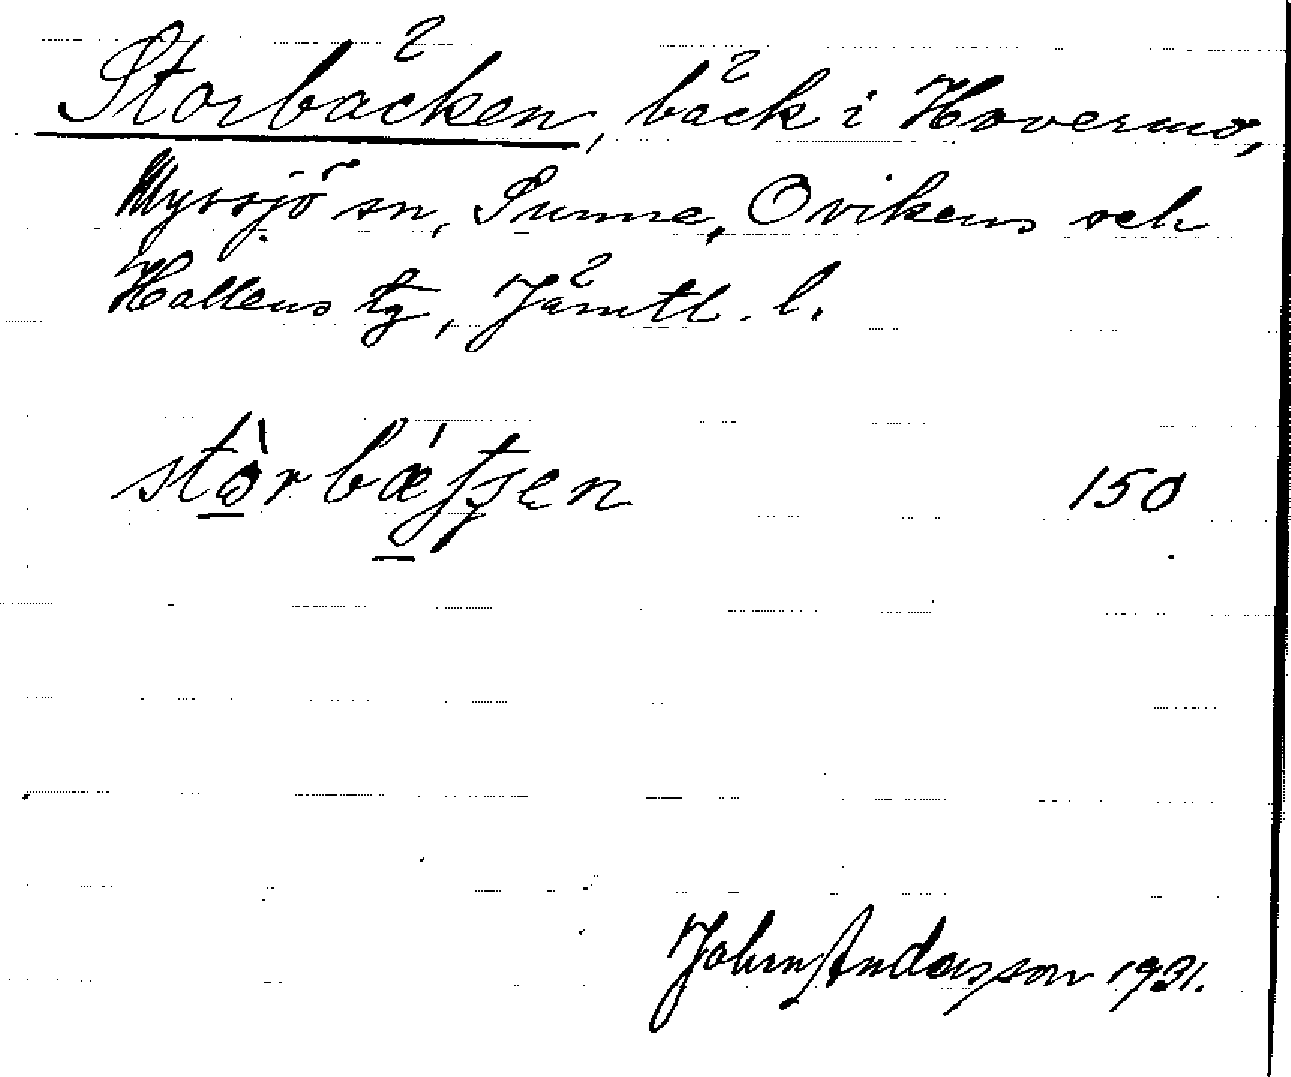 Storbäcken, bäck i Hovermo,
Myssjö sn, Sunne, Ovikens och
Hallens tg, Jämtl. l.
150
John Andersson 1931.